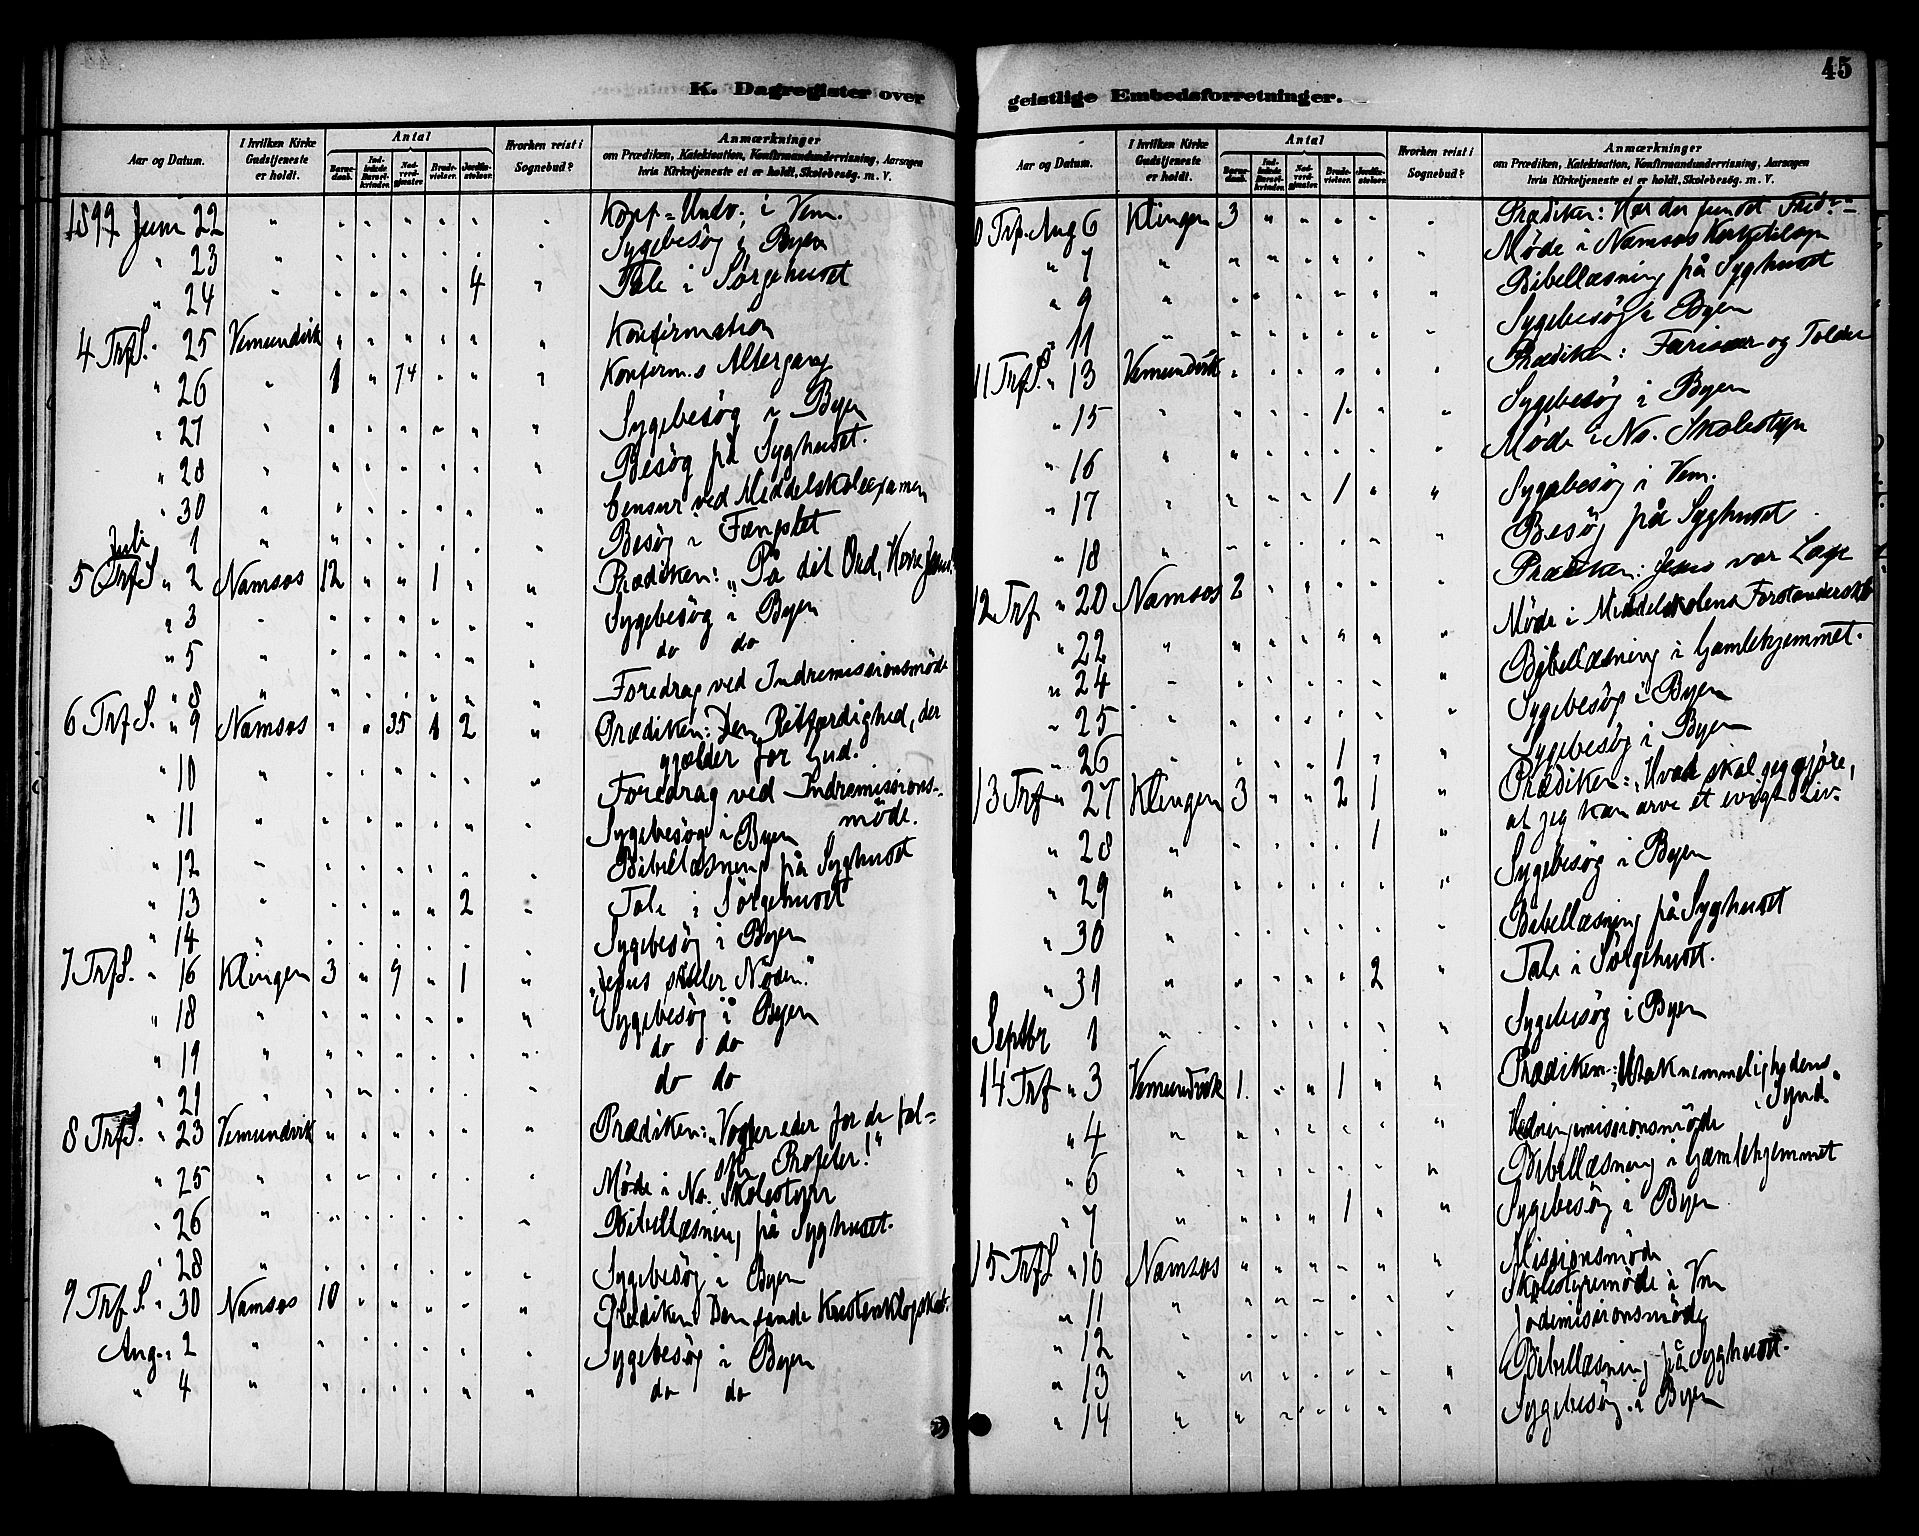 K. Dagregister over
Aar og Datum. I hvilken Kirke Gudstjeneste er holdt. Antal Barnedaab. Indledede Barselkvinder. Nadverdgjæster Brudevielser. Jordfæstelser. Hvorhen reist i Sognebud? Anmærkninger om Prædiken, Katekisation, Konfirmandundervisning, Aarsagen hvis Kirketjeneste ei er holdt, Skolebesøg. m. V.
1899 Juni 22 " " " " " " " Konf=Undv. i Vem.
" 23 " " " " " " " Sygebesög i Byen
" 24 " " " " " 4 " Tale i Sörgehuset
4 Trf S. " 25 Vemundvik " " " " " " Konfirmation
" 26 " 1 " 74 " " " Konfirm.s Altergang
" 27 " " " " " " " Sygebesög i Byen
" 28 " " " " " " " Besög på Syghuset.
" 30 " " " " " " " Censur ved Middelskolexamen
Juli 1 " " " " " " " Besög i Fængslet
5 Trf S " 2 Namsos 12 " " 1 " " Prædiken: "På dit Ord, Herre Jesus!
" 3 " " " " " " " Sygebesög i Byen
" 5 " " " " " " " do do
" 8 " " " " " " " Foredrag ved Indremissionsmöde
6 Trf S. " 9 Namsos " " 35 1 2 " Prædiken: Den Retfærdighed, der
gjælder for Gud.
" 10 " " " " " " " Foredrag ved Indremissions-
möde.
" 11 " " " " " " " Sygebesög i Byen
" 12 " " " " " " " Bibellæsning på Syghuset
" 13 " " " " " 2 " Tale i Sörgehuset
" 14 " " " " " " " Sygebesög i Byen
7 Trf S. " 16 Klingen 3 " 9 " 1 " "Jesus stiller Nöden."
" 18 " " " " " " " Sygebesög i Byen
" 19 " " " " " " " do do
" 21 " " " " " " " do do
8 Trf S. " 23 Vemundvik " " " " " " Prædiken: "Vogter eder for de fal=
ske Profeter!"
" 25 " " " " " " " Möde i Ns. Skolestyre
" 26 " " " " " " " Bibellæsning på Syghuset.
" 28 " " " " " " " Sygebesög i Byen
9 Trf S. " 30 Namsos 10 " " " " " Prædiken Den sande Kristenklogskab.
Aug. " 2 " " " " " " " Sygebesög i Byen
" 4 " " " " " " " do do
geistlige Embedsforretninger.
45
Aar og Datum. I hvilken Kirke Gudstjeneste er holdt. Antal Barnedaab. Indledede Barselkvinder. Nadverdgjæster Brudevielser. Jordfæstelser. Hvorhen reist i Sognebud? Anmærkninger om Prædiken, Katekisation, Konfirmandundervisning, Aarsagen hvis Kirketjeneste ei er holdt, Skolebesøg. m. V.
10 Trf. Aug 6 Klingen 3 " " " " " Prædiken: Har du fundet Fred?"
" 7 " " " " " " " Möde i Namsos Kirketilsyn
" 9 " " " " " " " Bibellæsning på Syghuset
" 11 " " " " " " " Sygebesög i Byen
11 Trf S. " 13 Vemundvik " " " " " " Prædiken: Farisæer og Tolder
" 15 " " " " 1 " " Sygebesög i Byen
" 16 " " " " " " " Möde i Ns. Skolestyre
" 17 " " " " 1 " " Sygebesög i Vem.
" 18 " " " " " " " Besög på Syghuset
12 Trf " 20 Namsos 2 " " " " " Prædiken: Jesus vor Læge
" 22 " " " " " " " Möde i Middelskolens Forstanderskab
" 24 " " " " " " " Bibellæsning i Gamlehjemmet.
" 25 " " " " " " " Sygebesög i Byen
" 26 " " " " 1 " " Sygebesög i Byen
13 Trf " 27 Klingen 3 " " 2 1 " Prædiken: "Hvad skal jeg gjöre,
at jeg kan arve et evigt Liv.
" 28 " " " " " 1 " Sygebesög i Byen
" 29 " " " " " " " Bibellæsning på Syghuset
" 30 " " " " " " " Tale i Sörgehuset.
" 31 " " " " " 2 "
Septbr 1 " " " " " " " Sygebesög i Byen
14 Trf " 3 Vemundvik 1 " " 1 " " Prædiken: "Utaknemmelighedens
Synd."
" 4 " " " " " " " Hedningemissionsmöde
" 6 " " " " " " " Bibellæsning i Gamlehjemmet
" 7 " " " " 1 " " Sygebesög i Byen
15 Trf S " 10 Namsos " " " " " " Missionsmöde
" 11 " " " " " " " Skolestyremöde i Vm
" 12 " " " " " " " Jödemissionsmöde
" 13 " " " " " " " Bibellæsning på Syghuset.
" 14 " " " " " " " Sygebesög i Byen